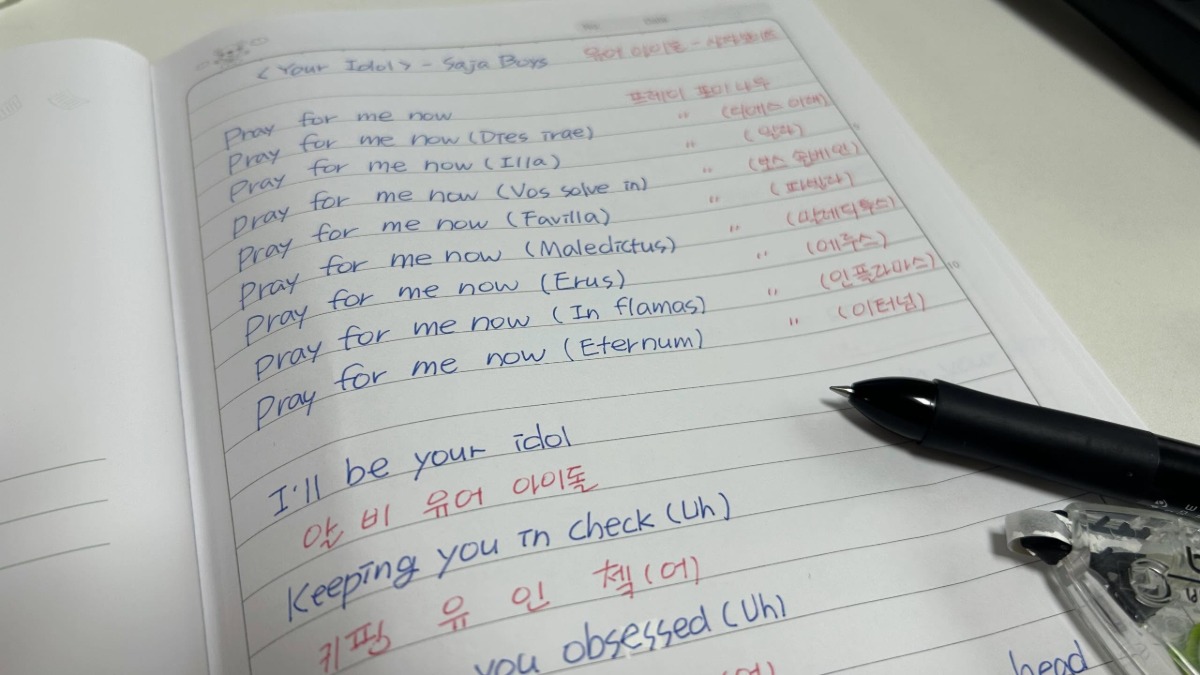 <Your Idol> - Saja Boys 유어 아이돌 - 사자보이즈
프레이 포미 나우
Pray for me now
Pray for me now (Dies irae) " (디에스 이레)
Pray for me now (Illa) " (일라)
Pray for me now (Vos solve in) " (보스 솔베인)
Pray for me now (Favilla) " (파빌라)
Pray for me now (Maledictus) " (말레딕투스)
Pray for me now (Erus) " (에루스)
Pray for me now (In flamas) " (인플라마스)
Pray for me now (Eternum) " (이터넘)
I'll be your idol
알 비 유어 아이돌
Keeping you in check (Uh)
키핑 유 인 첵(어)
you obsessed (Uh)
head